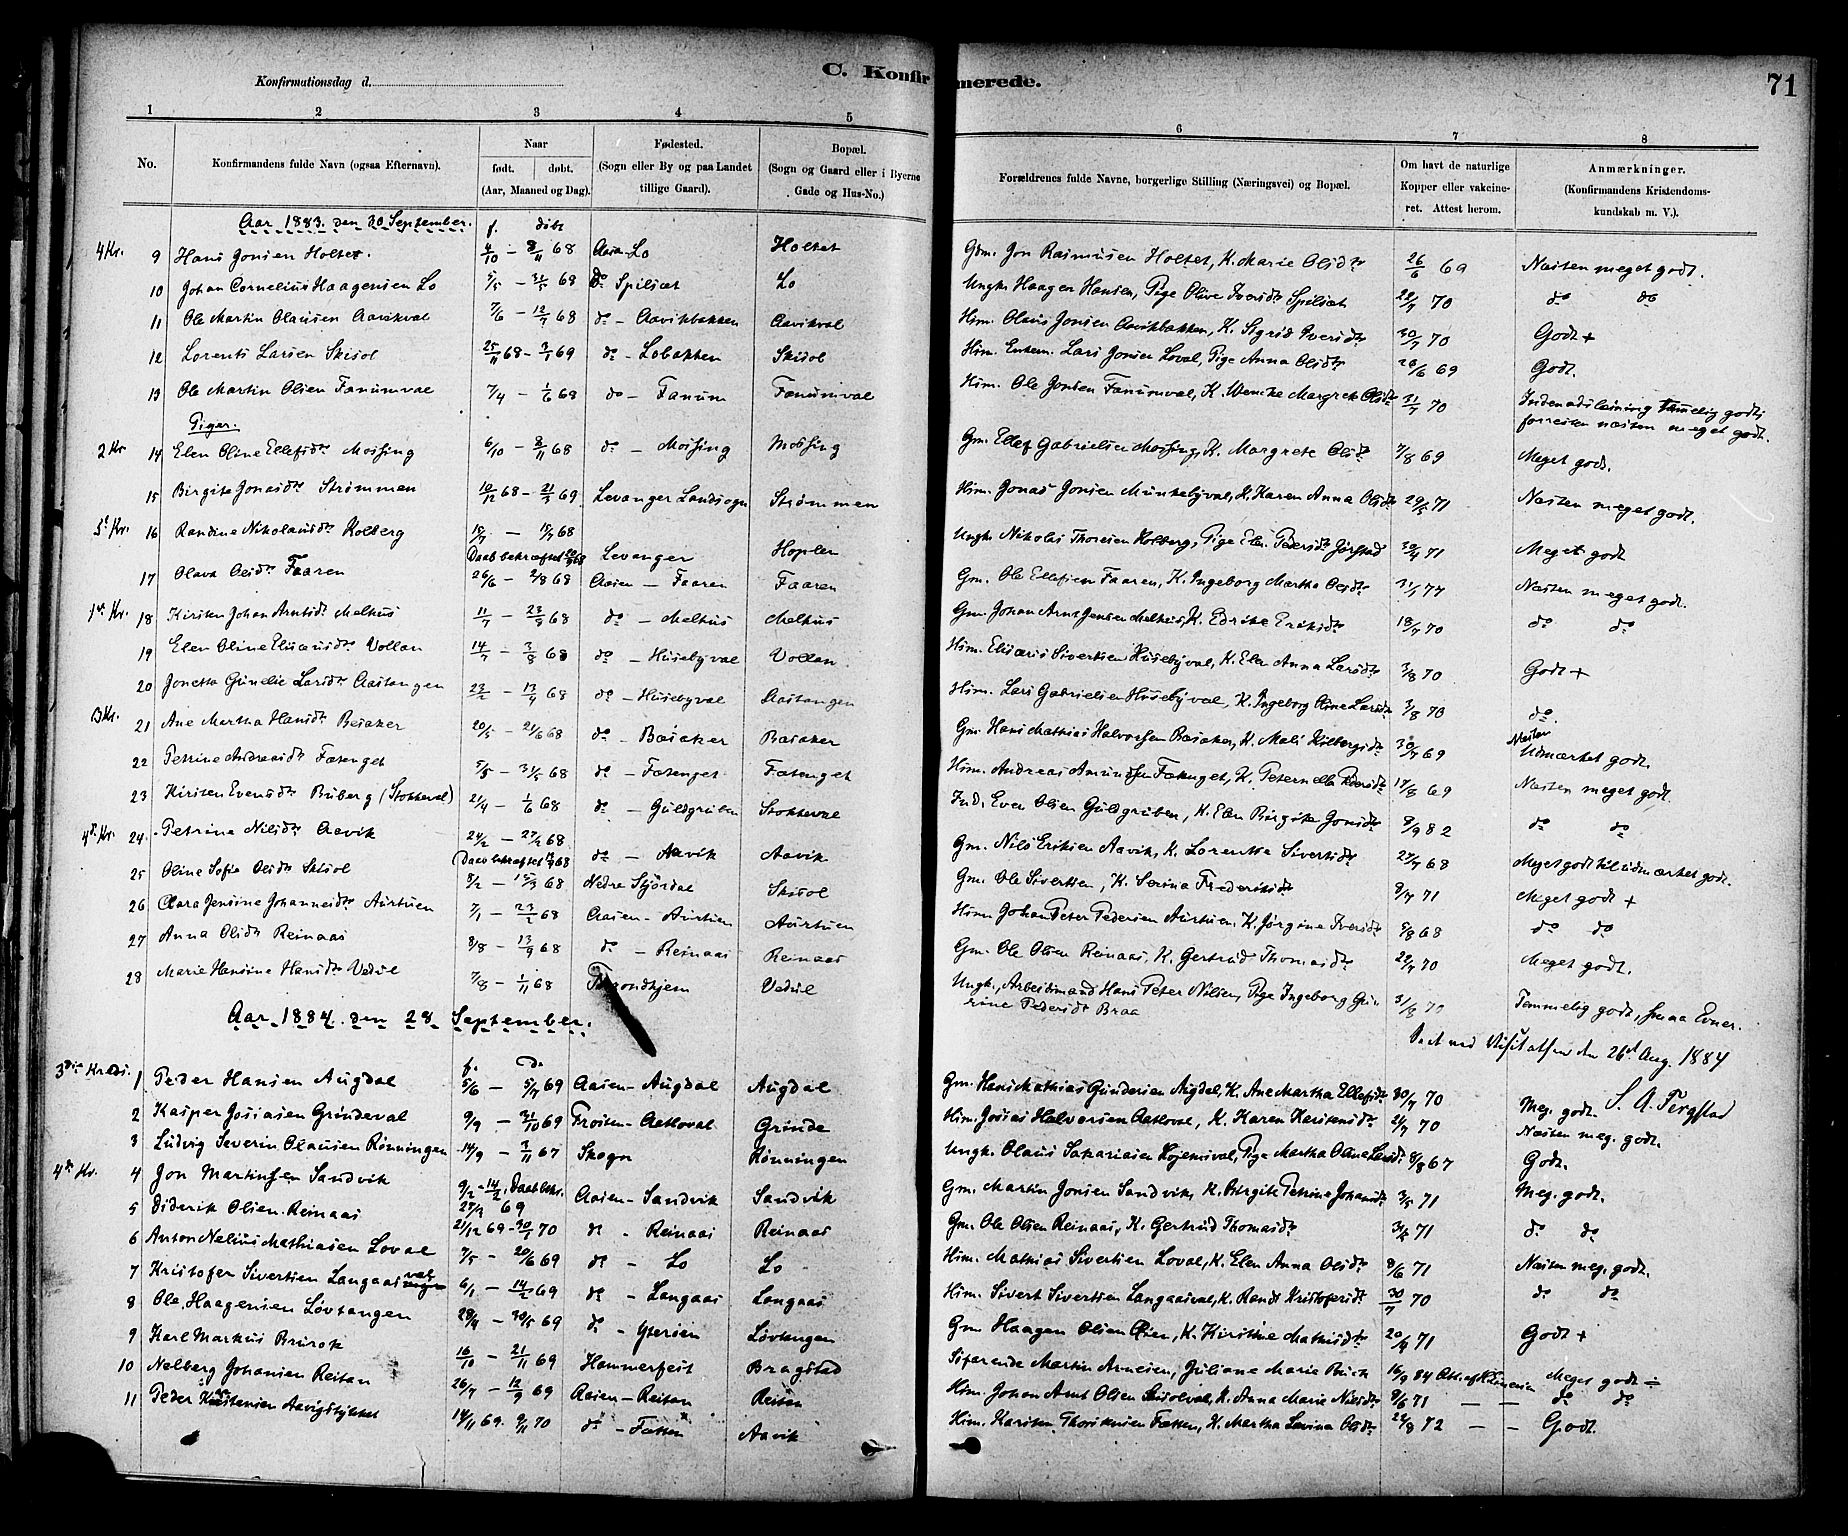 Konfirmationsdag d.
C. Konfirmerede.
71
1 2 3 4 5 6 7 8
No.
Konfirmandens fulde Navn (ogsaa Efternavn).
Naar
født. døbt.
(Aar, Maaned og Dag).
Fødested.
(Sogn eller By og paa Landet
tillige Gaard).
Bopæl.
(Sogn og Gaard eller i Byerne
Gade og Hus-No.)
Forældrenes fulde Navne, borgerlige Stilling (Næringsvei) og Bopæl.
Om havt de naturlige
Kopper eller vakcine-
ret. Attest herom.
Anmærkninger.
(Konfirmandens Kristendoms-
kundskab m. V.).
Aar 1883 den 30 September. f. døbt
4 Kr. 9 Hans Jonsen Holtet. 4/10 – 8/11 68 Aasen Lo Holtet Gdm. Jon Rasmusen Holtet, K. Marie Olsdtr 26/6 69 Næsten meget godt.
10 Johan Cornelius Haagensen Lo 5/5 – 31/5 68 do Spilset Lo Ungk. Haagen Hansen, Pige Olive Iversdtr Spilset 22/7 70 do do
11 Ole Martin Olausen Aavikval 7/6 – 12/7 68 do – Aavikbakken Aavikval Hsm. Olaus Jonsen Aavikbakken, K. Sigrid Iversdtr 30/7 70 Godt +
12 Lorents Larsen Skisol 25/11 68 – 3/1 69 do – Lobakken Skisol Hsm. Enkem. Lars Jonsen Loval, Pige Anna Olsdtr 26/6 69 Godt.
13 Ole Martin Olsen Fanumval 7/4 – 1/6 68 do – Fanum Fanumval Hsm. Ole Jonsen Fanumval, K. Wencke Margrete Olsdtr 31/7 70 Indenadslæsning temmelig godt,
forresten næsten meget godt.
Piger.
2 Kr 14 Elen Oline Ellefsdtr Mossing 6/10 – 8/11 68 do – Mossing Mossing Gm. Ellef Gabrielsen Mossing, K. Margrete Olsdtr 7/8 69 Meget godt.
15 Birgite Jonasdtr Strømmen 10/12 68 – 21/3 69 Levanger Landsogn Strømmen Hsm. Jonas Jonsen Munkebyval, K. Karen Anna Olsdtr 29/5 71 Næsten meget godt.
3d Kr. 16 Randine Nikolausdtr Kolberg 15/7 – 15/7 68 Levanger Hoplen Ungk. Nikolai Thoresen Kolberg, Pige Elen Pedersdtr Jørstad 30/4 71 Meget godt
Daab bekræftet
17 Olava Olsdtr Faaren 26/6 – 2/8 68 Aasen – Faaren Faaren Gm. Ole Ellefsen Faaren, K. Ingeborg Martha Olsdtr 31/1 77 Næsten meget godt.
1ste Kr. 18 Kirsten Johan Arntsdtr Melhus 11/7 – 23/8 68 do – Melhus Melhus Gm. Johan Arnt Jensen Melhus, K. Edrike Eriksdtr 18/7 70 do do
19 Elen Oline Elisæusdtr Vollan 14/7 – 3/8 68 do – Husebyval Vollan. Hsm. Elisæus Sivertsen Husebyval, K. Elen Anna Larsdtr 3/8 70 Godt +
20 Jonetta Gunelie Larsdtr Aastangen 23/2 – 13/4 68 do – Husebyval Aastangen Hsm. Lars Gabrielsen Husebyval, K. Ingeborg Oline Larsdtr 3/8 70 do.
3 Kr. 21 Ane Martha Hansdtr Besaker 20/5 – 21/6 68 do – Bøsaker Bøsaker Gm. Hans Mathias Halvorsen Bøsaker, K. Mali Kolbergsdtr 30/7 69 Næsten
Udmærket godt.
22 Petrine Andreasdtr Fætenget 5/5 – 31/5 68 do – Fætenget Fætenget Hsm. Andreas Amundsen Fætenget, K. Peternelle Pedersdtr 17/8 69 Næsten meget godt.
23 Kirsten Evensdtr Buberg (Stokkeval) 21/4 – 1/6 68 do – Guldgruben Stokkeval Ind. Even Olsen Guldgruben, K. Elen Birgite Jonsdtr 9/9 82 do do
4de Kr. 24. Petrine Nilsdtr Aavik 24/2 – 27/2 68 do – Aavik Aavik Gm. Nils Eriksen Aavik, K. Lorentse Sivertsdtr 27/7 68 Meget godt til udmærket godt.
Daab bekræftet
25 Oline Sofie Olsdtr Skisol 8/2 – 15/3 68 Nedre Stjørdal Skisol Gm. Ole Sivertsen, K. Serina Frederiksdtr 8/7 71 Meget godt +
26 Clara Jensine Johannesdtr Aurtuen 7/1 – 23/2 68 Aasen – Aurtuen Aurtuen Hsm. Johan Peter Pedersen Aurtuen, K. Jørgine Iversdtr 8/8 68 do do
27 Anna Olsdtr Reinaas 8/8 – 13/9 68 do – Reinaas Reinaas Gm. Ole Olsen Reinaas, K. Gertrud Thomasdtr 22/7 70 Meget godt.
28 Marie Hansine Hansdtr Vedul 7/8 – 1/11 68 Trondhjem Vedul Ungk., Arbeidsmand Hans Peter Nilsen, Pige Ingeborg Gu-
rine Pedersdtr Braa 31/8 70 Temmelig godt, smaa Evner.
Aar 1884 den 28 September.
Seet ved Visitatsen den 26de Aug. 1884
S. A. Fergstad
3die Kreds. f. d.
1 Peder Hansen Augdal 5/6 – 5/7 69 Aasen – Augdal Augdal Gm. Hans Mathias Gundersen Augdal, K. Ane Martha Ellefsdtr 30/7 70 Meg. godt
2 Kasper Josiasen Grindeval 9/9 – 31/10 69 Frosten – Aatloval Grinde Hsm. Josias Halvorsen Aatloval, K. Karen Karstensdtr 21/7 70 Næsten meg. godt.
3 Ludvig Severin Olausen Rønningen 14/9 – 3/11 67 Skogn Rønningen Ungk. Olaus Sakariasen Hojemsval, Pige Martha Oline Larsdtr 8/8 67 Godt.
4de Kr. 4 Jon Martinsen Sandvik 9/2 – 14/2, Daab bekr. 27/3 69 Aasen – Sandvik Sandvik Gm. Martin Jonsen Sandvik, K. Birgite Petrine Johansdtr 3/5 71 Meg. godt.
5 Diderik Olsen Reinaas 21/12 69 – 30/1 70 do – Reinaas Reinaas Gm. Ole Olsen Reinaas, K. Gertrud Thomasdtr 3/5 71 do do
6 Anton Nelius Mathiasen Loval 7/5 – 20/6 69 do – Lo Lo Hsm. Mathias Sivertsen Loval, K. Elen Anna Olsdtr 8/6 71 Næsten meg. godt.
7 Kristofer Sivertsen Langaasval 6/1 – 14/2 69 do – Langaas Langaas Hsm. Sivert Sivertsen Langaasval, K. Randi Kristofersdtr 30/7 70 do do
8 Ole Haagensen Løvtangen 28/4 – 30/5 69 do – Ytterøen Løvtangen Gm Haagen Olsen Øien, K. Kirstine Mathisdtr 20/4 71 Godt +
9 Karl Markus Brurok 16/10 – 21/11 69 Hammerfest Bragstad Søfarende Martin Arnesen, Juliane Marie Buch 16/9 84 Att. af Meget godt –
10 Nelberg Johansen Reitan 26/7 – 12/9 69 Aasen – Reitan Reitan Hsm. Johan Arnt Olsen Skisolval, K. Anna Marie Nilsdtr 8/6 71 – – do do
11 Peder Karstensen Aavigstykket 14/11 69. 9/11 70 do – Fætten Aavik Hsm. Karsten Thoresen Fætten, K. Martha Lovina Olsdtr 24/8 72 – – Godt.